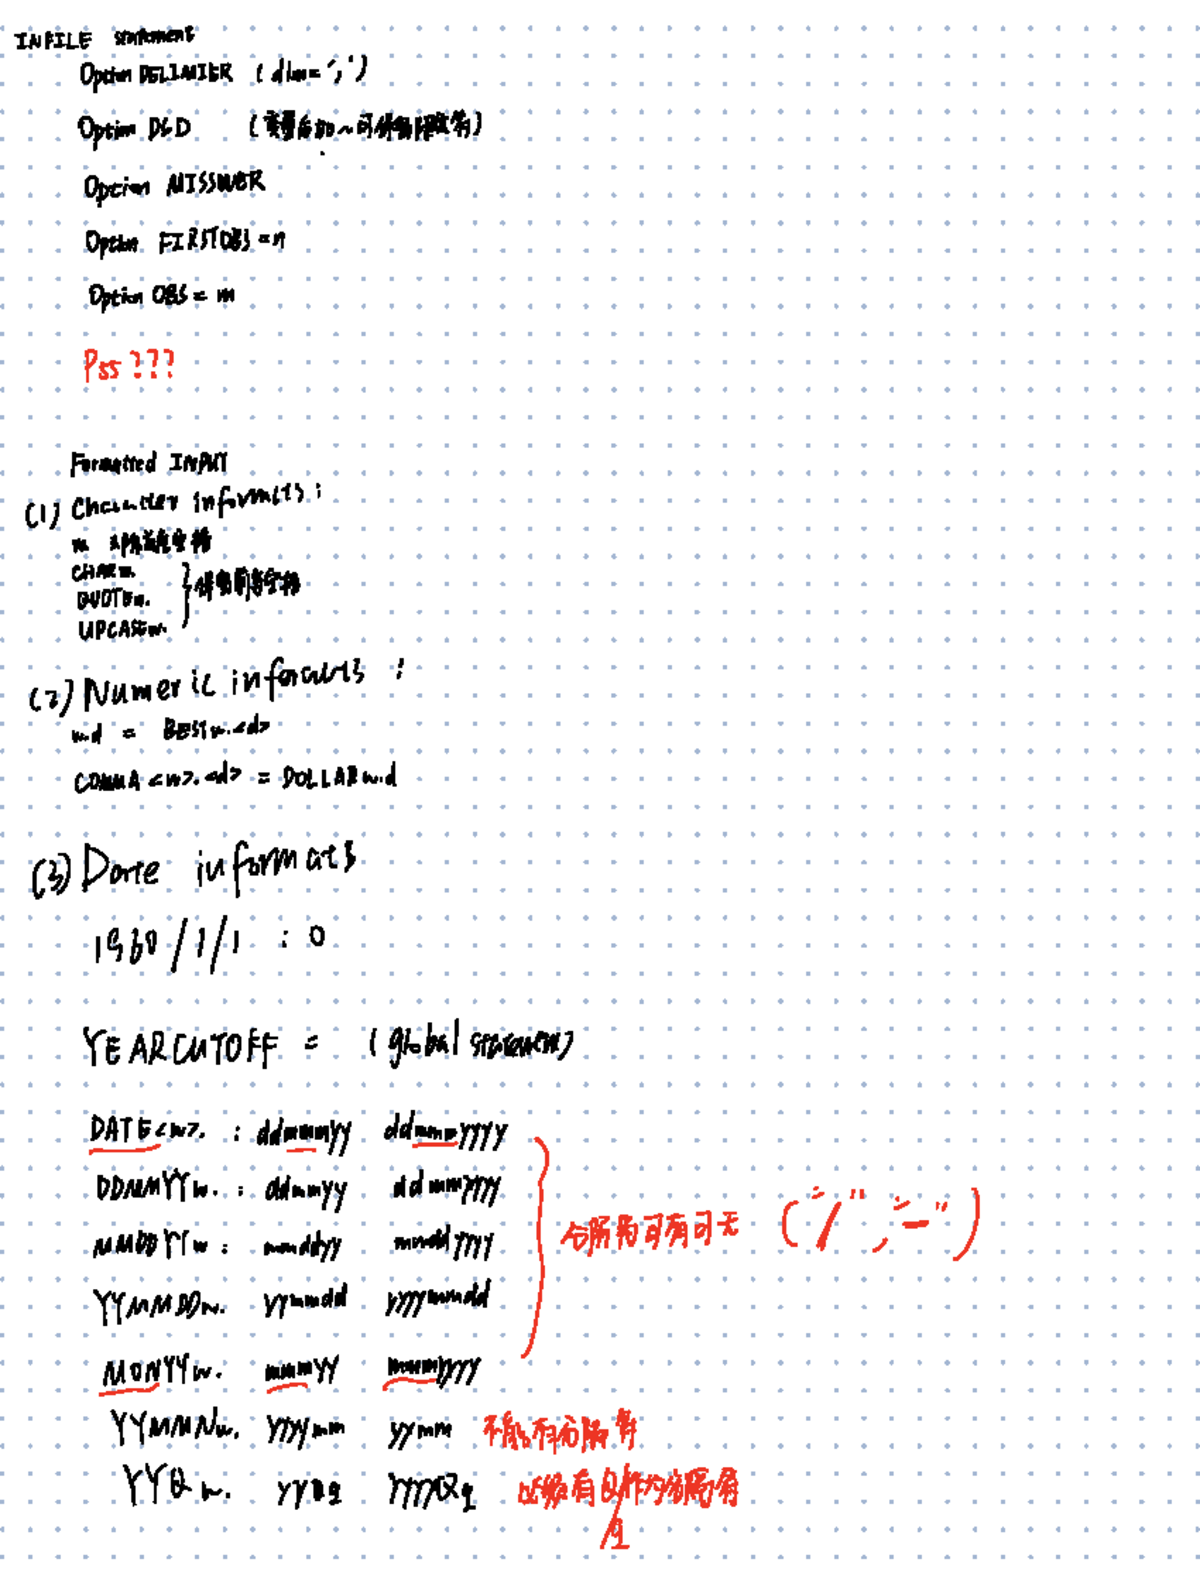 INFILE statement
Option DELIMIER (dlm=',')
Option DSD (变量后加~可保留限改符)
Option MISSOVER
Option FIRSTOBS=n
Option OBS=m
Pss???
Formatted INPUT
(1) Character informats:
w 去除前尾空格
CHARw.
QUOTEw. } 保留前后空格
UPCASEw.
(2) Numeric informats:
w.d = BESTw.<d>
COMMA<w>.<d> = DOLLARw.d
(3) Date informats
1960/1/1 : 0
YEARCUTOFF = (global statement)
DATE<w>. : ddmmmyy ddmmmyyyy
DDMMYYw. : ddmmyy ddmmyyyy
MMDDYYw : mmddyy mmddyyyy 分隔符可有可无 ("/","-")
YYMMDDw. yymmdd yyyymmdd
MONYYw. mmmyy mmmyyyy
YYMMNw. yyyymm yymm 不能有分隔符
YYQw. yyQq yyyyQq 必须有Q作为分隔符
/q